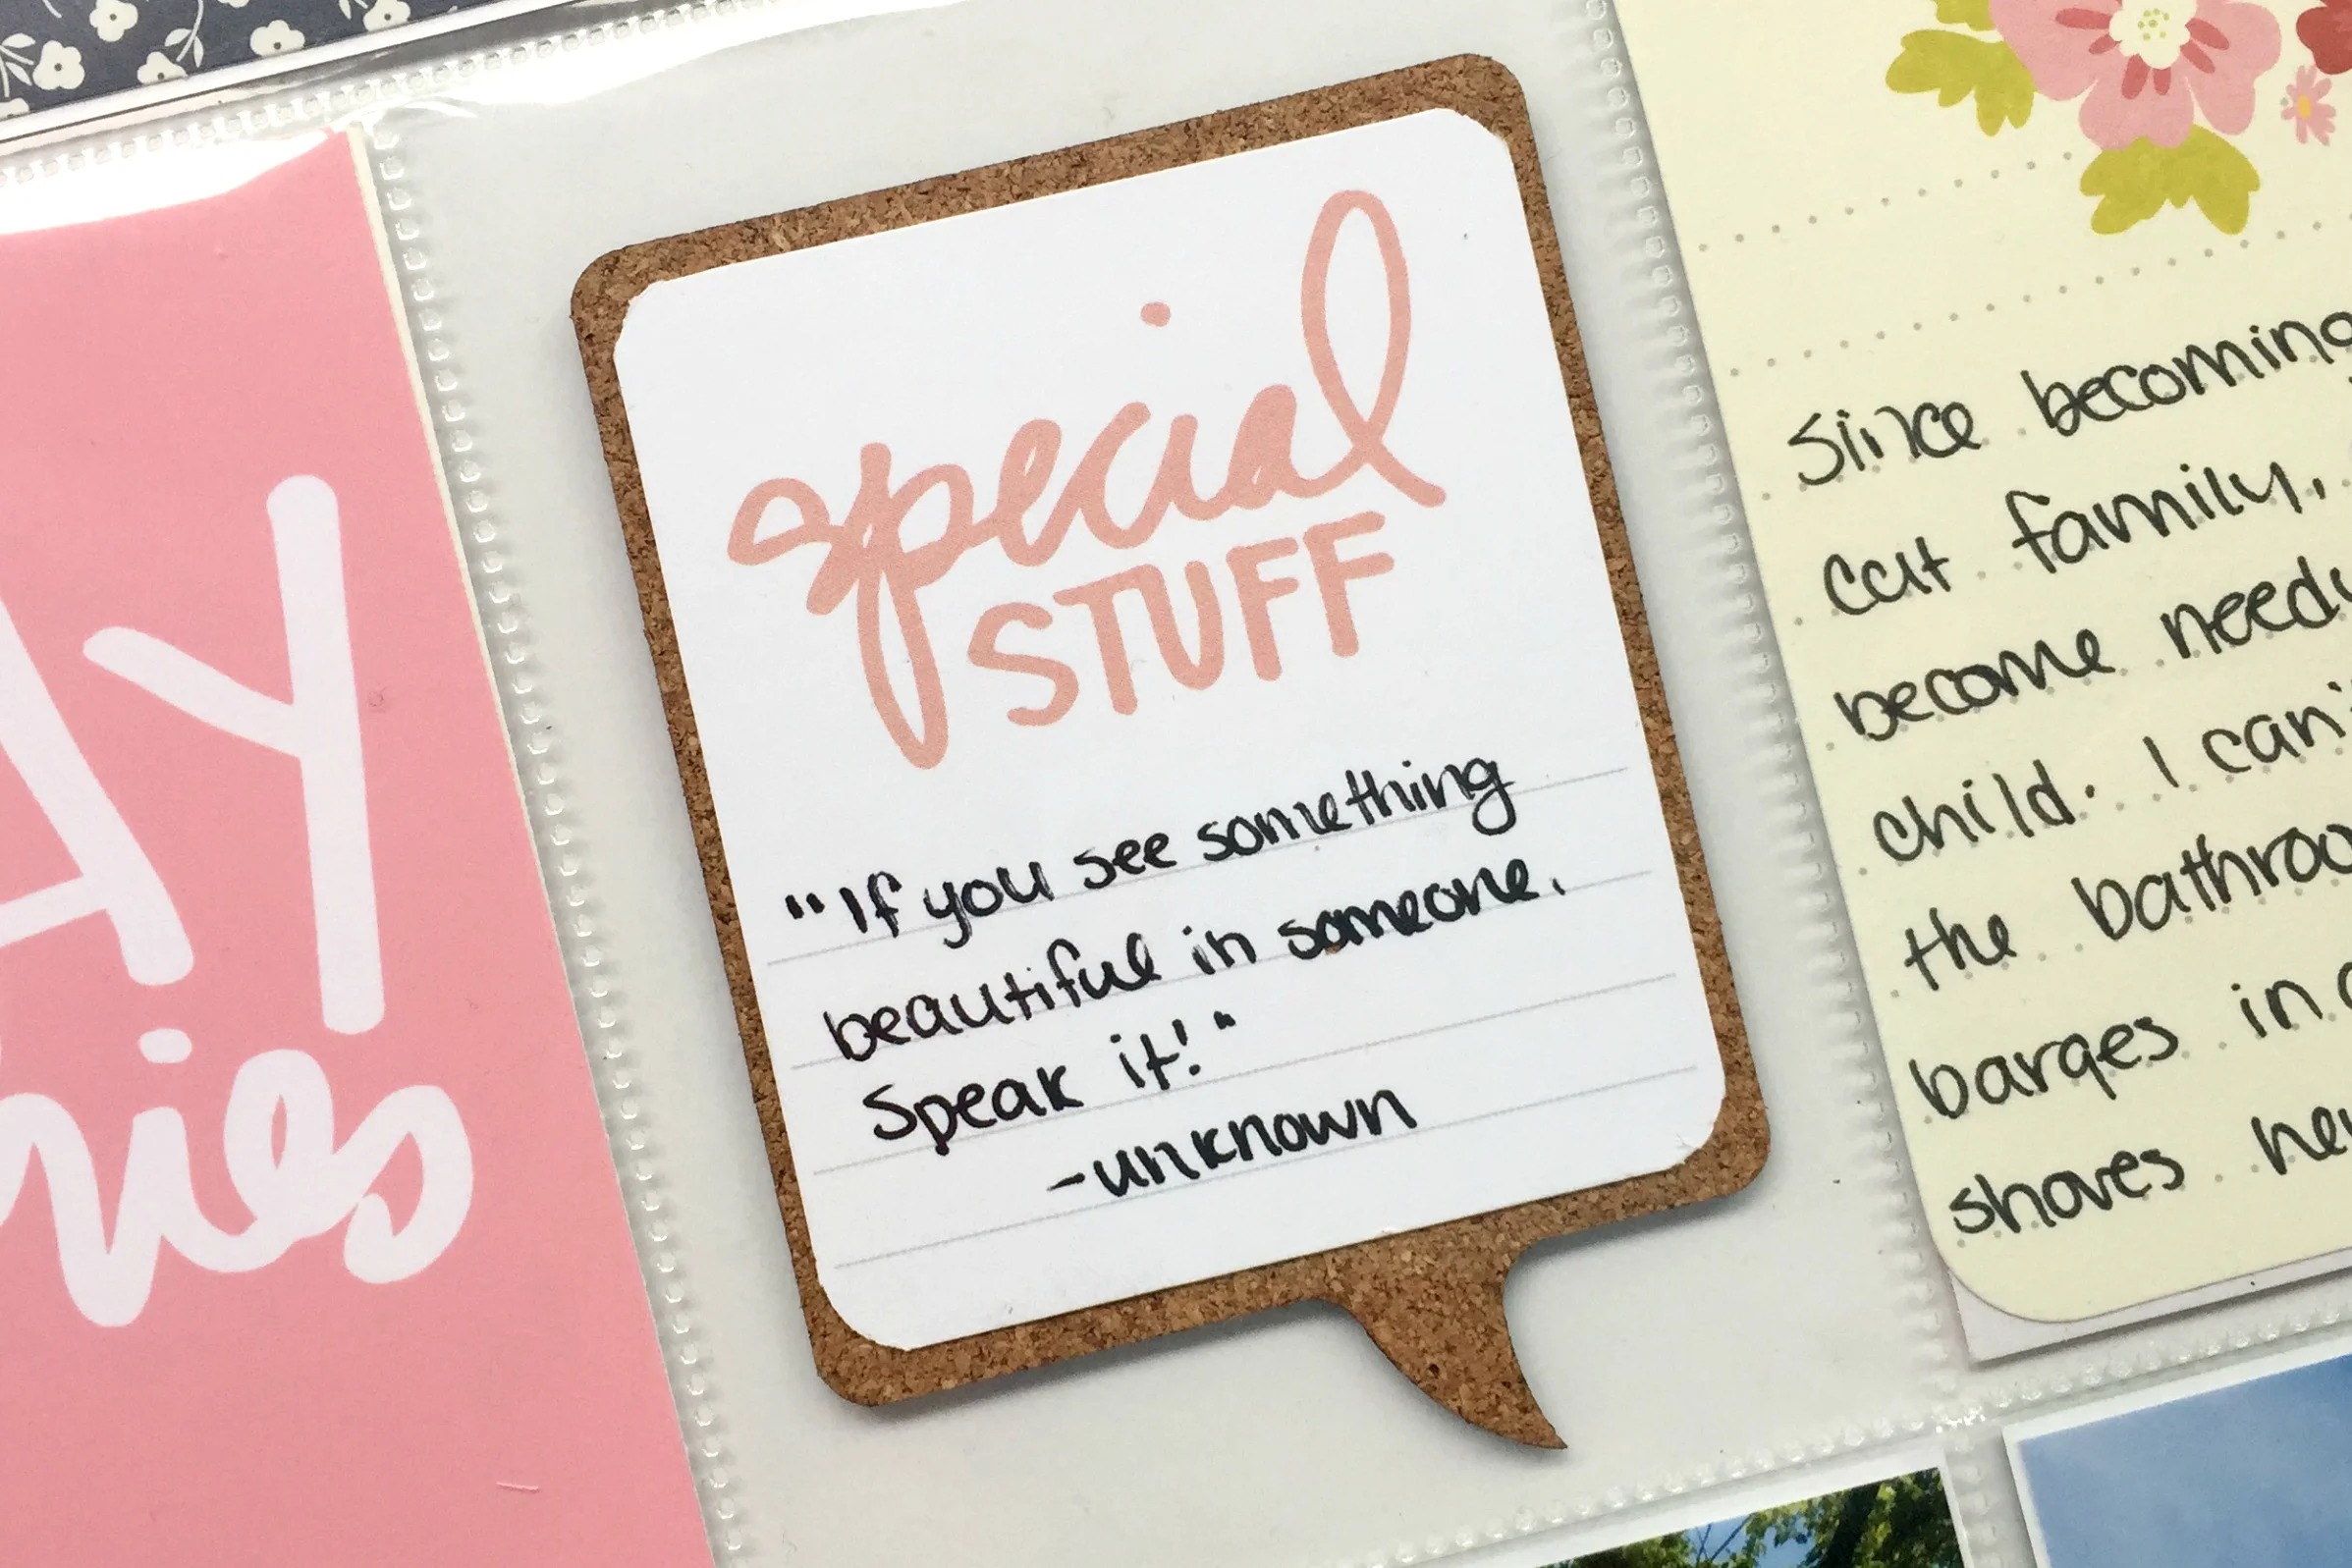 AY
special
STUFF
"If you see something
beautiful in someone.
Speak it!"
-unknown
Since becoming
cat family,
become needy
child. I can't
the
barges in
shoves